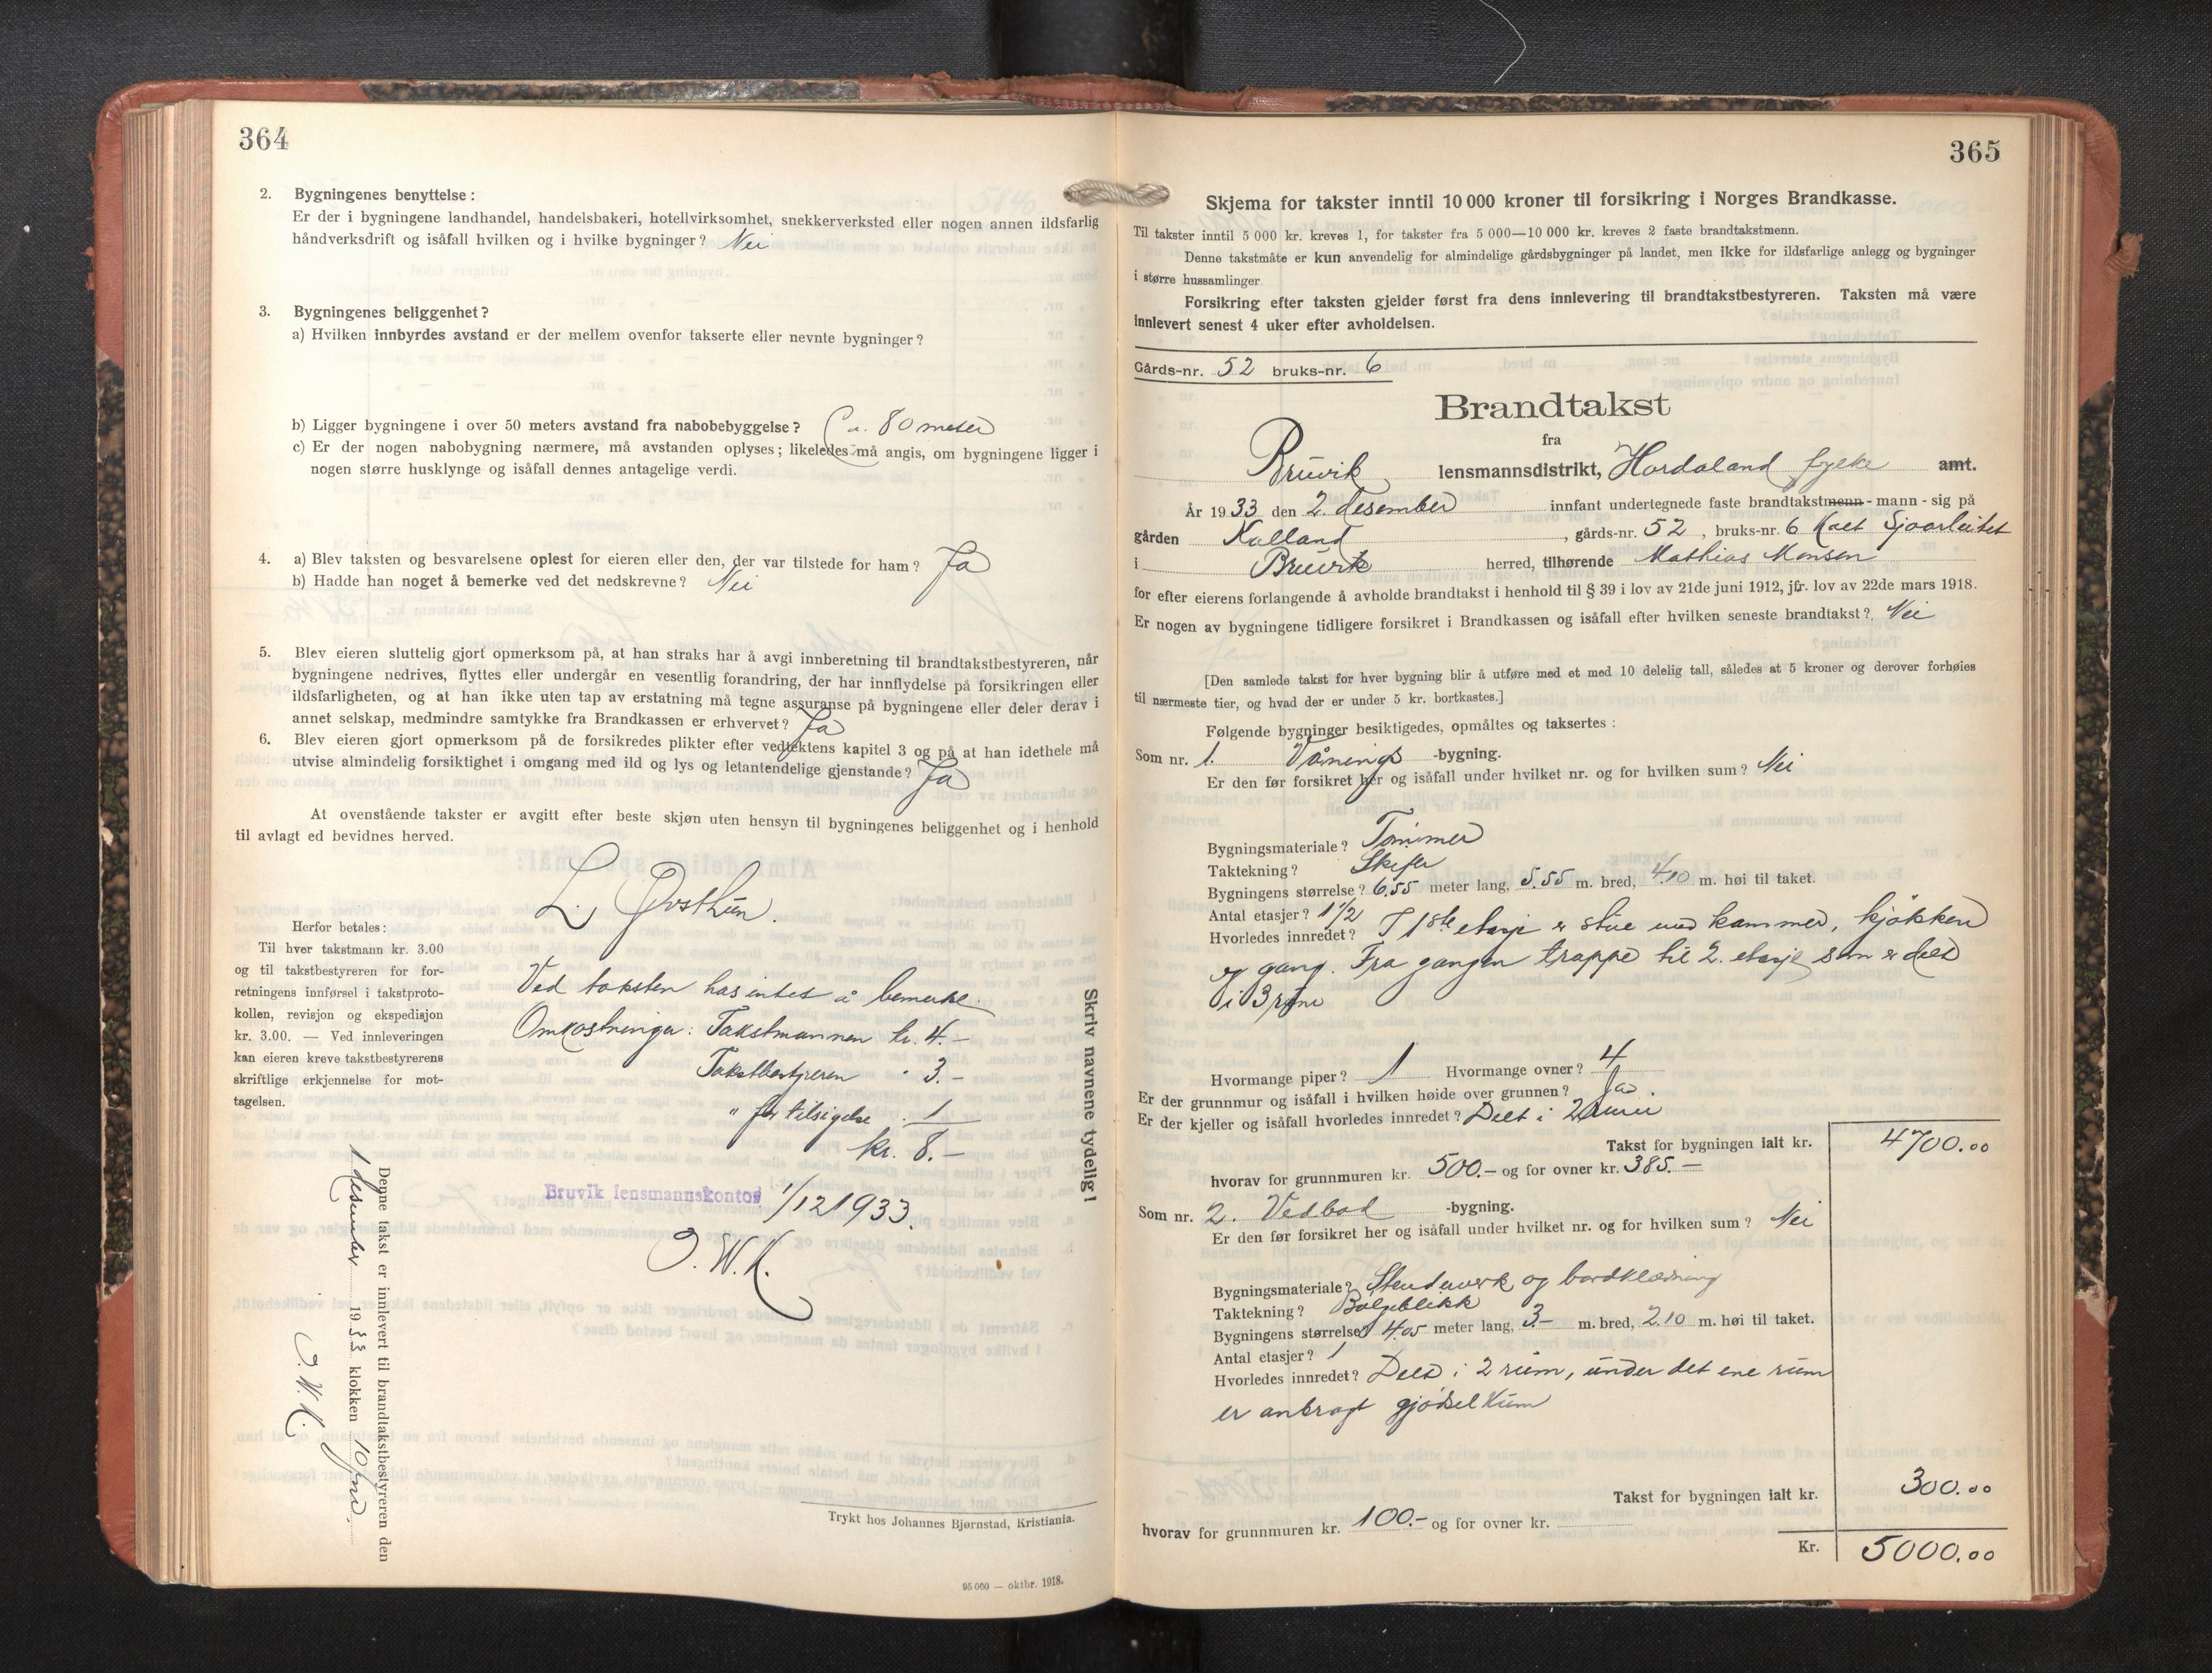 364
2. Bygningenes benyttelse:
Er der i bygningene landhandel, handelsbakeri, hotellvirksomhet, snekkerverksted eller nogen annen ildsfarlig
håndverksdrift og isåfall hvilken og i hvilke bygninger? Nei
3. Bygningenes beliggenhet?
a) Hvilken innbyrdes avstand er der mellem ovenfor takserte eller nevnte bygninger?
b) Ligger bygningene i over 50 meters avstand fra nabobebyggelse? Ca. 80 meter
c) Er der nogen nabobygning nærmere, må avstanden oplyses; likeledes må angis, om bygningene ligger i
nogen større husklynge og isåfall dennes antagelige verdi.
4. a) Blev taksten og besvarelsene oplest for eieren eller den, der var tilstede for ham? Ja
b) Hadde han noget å bemerke ved det nedskrevne? Nei
5. Blev eieren sluttelig gjort opmerksom på, at han straks har å avgi innberetning til brandtakstbestyreren, når
bygningene nedrives, flyttes eller undergår en vesentlig forandring, der har innflydelse på forsikringen eller
ildsfarligheten, og at han ikke uten tap av erstatning må tegne assuranse på bygningene eller deler derav i
annet selskap, medmindre samtykke fra Brandkassen er erhvervet? Ja
6. Blev eieren gjort opmerksom på de forsikredes plikter efter vedtektens kapitel 3 og på at han idethele må
utvise almindelig forsiktighet i omgang med ild og lys og letantendelige gjenstande? Ja
At ovenstående takster er avgitt efter beste skjøn uten hensyn til bygningenes beliggenhet og i henhold
til avlagt ed bevidnes herved.
L.
Herfor betales:
Til hver takstmann kr. 3.00
og til takstbestyreren for for-
retningens innførsel i takstproto-
kollen, revisjon og ekspedisjon
kr. 3.00. — Ved innleveringen
kan eieren kreve takstbestyrerens
skriftlige erkjennelse for mot-
tagelsen.
Ved taksten has intet å bemerke.
Omkostninger: Takstmannen kr. 4.-
Takstbestyreren " 3.-
" for tilsigelse " 1
kr. 8.-
Bruvik lensmannskontor 1/12 1933.
O. W. K.
Skriv navnene tydelig!
Denne takst er innlevert til brandtakstbestyreren den
1 desember 1933 klokken 10 fmd.
O. W. K.
Trykt hos Johannes Bjørnstad, Kristiania.
95 000 — oktbr. 1918.
365
Skjema for takster inntil 10 000 kroner til forsikring i Norges Brandkasse.
Til takster inntil 5 000 kr. kreves 1, for takster fra 5 000—10 000 kr. kreves 2 faste brandtakstmenn.
Denne takstmåte er kun anvendelig for almindelige gårdsbygninger på landet, men ikke for ildsfarlige anlegg og bygninger
i større hussamlinger.
Forsikring efter taksten gjelder først fra dens innlevering til brandtakstbestyreren. Taksten må være
innlevert senest 4 uker efter avholdelsen.
Gårds-nr. 52 bruks-nr. 6
Brandtakst
fra
Bruvik lensmannsdistrikt, Hordaland fylke amt.
År 1933 den 2. desember innfant undertegnede faste brandtakstmenn - mann - sig på
gården Kalland, gårds-nr. 52, bruks-nr. 6 kalt Sjoarleitet
i Bruvik herred, tilhørende Mathias Monsen
for efter eierens forlangende å avholde brandtakst i henhold til § 39 i lov av 21de juni 1912, jfr. lov av 22de mars 1918.
Er nogen av bygningene tidligere forsikret i Brandkassen og isåfall efter hvilken seneste brandtakst? Nei
[Den samlede takst for hver bygning blir å utføre med et med 10 delelig tall, således at 5 kroner og derover forhøies
til nærmeste tier, og hvad der er under 5 kr. bortkastes.]
Følgende bygninger besiktigedes, opmåltes og taksertes:
Som nr. 1. Vånings -bygning.
Er den før forsikret her og isåfall under hvilket nr. og for hvilken sum? Nei
Bygningsmateriale? Tømmer
Taktekning? Skifer
Bygningens størrelse? 6.55 meter lang, 5.55 m. bred, 4.10 m. høi til taket.
Antal etasjer? 1 1/2
Hvorledes innredet? I 1ste etasje er stue med kammer, kjøkken
og gang. Fra gangen trappe til 2. etasje som er delt
i 3 rum
Hvormange piper? 1 Hvormange ovner? 4
Er der grunnmur og isåfall i hvilken høide over grunnen? Ja.
Er der kjeller og isåfall hvorledes innredet? Delt i 2 rum
Takst for bygningen ialt kr. 4700.00
hvorav for grunnmuren kr. 500.- og for ovner kr. 385.-
Som nr. 2. Vedbod -bygning.
Er den før forsikret her og isåfall under hvilket nr. og for hvilken sum? Nei
Bygningsmateriale? Stenderverk og bordklædning
Taktekning? Bølgeblikk
Bygningens størrelse? 4.05 meter lang, 3- m. bred, 2.10 m. høi til taket.
Antal etasjer? 1
Hvorledes innredet? Delt i 2 rum, under det ene rum
er anbragt gjødselkum
Takst for bygningen ialt kr. 300.00
hvorav for grunnmuren kr. 100.- og for ovner kr.
Kr. 5000.00